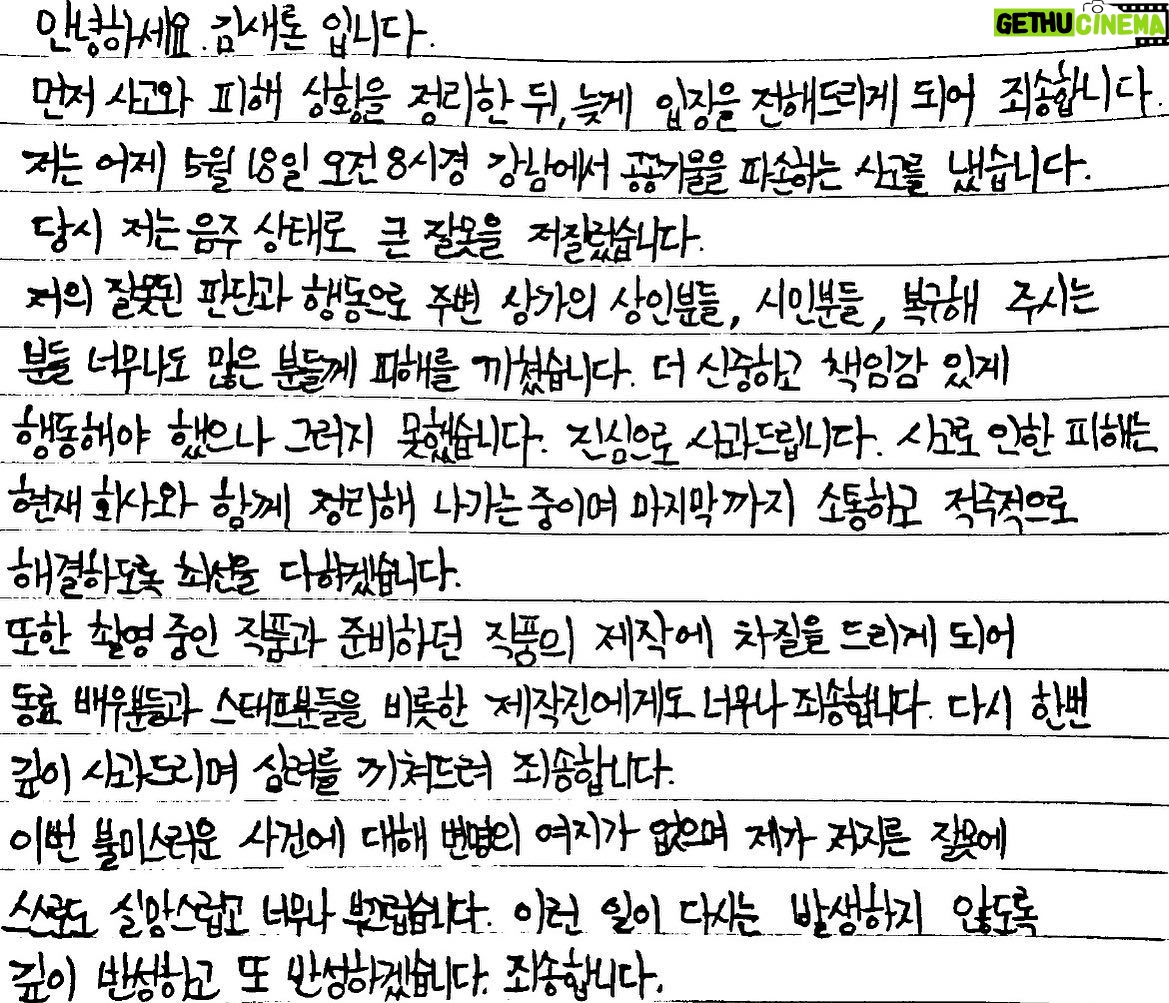 GETHUCINEMA
안녕하세요. 김새론 입니다.
먼저 사고와 피해 상황을 정리한 뒤, 늦게 입장을 전해드리게 되어 죄송합니다.
저는 어제 5월 18일 오전 8시경 강남에서 공공기물을 파손하는 사고를 냈습니다.
당시 저는 음주 상태로 큰 잘못을 저질렀습니다.
저의 잘못된 판단과 행동으로 주변 상가의 상인분들, 시민분들, 복구해 주시는
분들 너무나도 많은 분들께 피해를 끼쳤습니다. 더 신중하고 책임감 있게
행동해야 했으나 그러지 못했습니다. 진심으로 사과드립니다. 사고로 인한 피해는
현재 회사와 함께 정리해 나가는 중이며 마지막까지 소통하고 적극적으로
해결하도록 최선을 다하겠습니다.
또한 촬영 중인 작품과 준비하던 작품의 제작에 차질을 드리게 되어
동료 배우분들과 스태프분들을 비롯한 제작진에게도 너무나 죄송합니다. 다시 한번
깊이 사과드리며 심려를 끼쳐드려 죄송합니다.
이번 불미스러운 사건에 대해 변명의 여지가 없으며 제가 저지른 잘못에
스스로도 실망스럽고 너무나 부끄럽습니다. 이런 일이 다시는 발생하지 않도록
깊이 반성하고 또 반성하겠습니다. 죄송합니다.